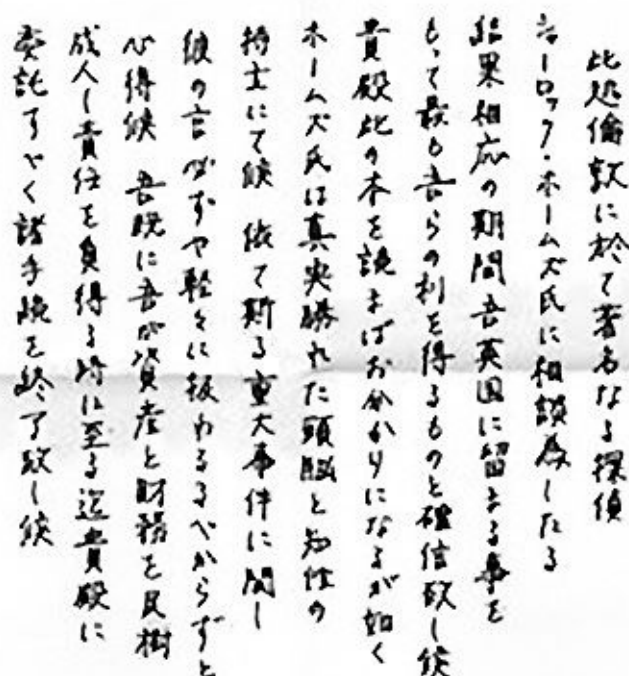 此処倫敦に於て著名なる探偵
シャーロック・ホームズ氏に相談為したる
結果相応の期間吾英国に留まる事を
もって最も吾らの利を得るものと確信致し候
貴殿此の本を読まばお分かりになるが如く
ホームズ氏は真実勝れた頭脳と知性の
持主にて候 依て斯る重大事件に関し
彼の言必ずや軽々に扱わるるべからずと
心得候 吾既に吾が資産と財務を民樹
成人し責任を負得る時に至る迄貴殿に
委託すべく諸手続を終了致し候